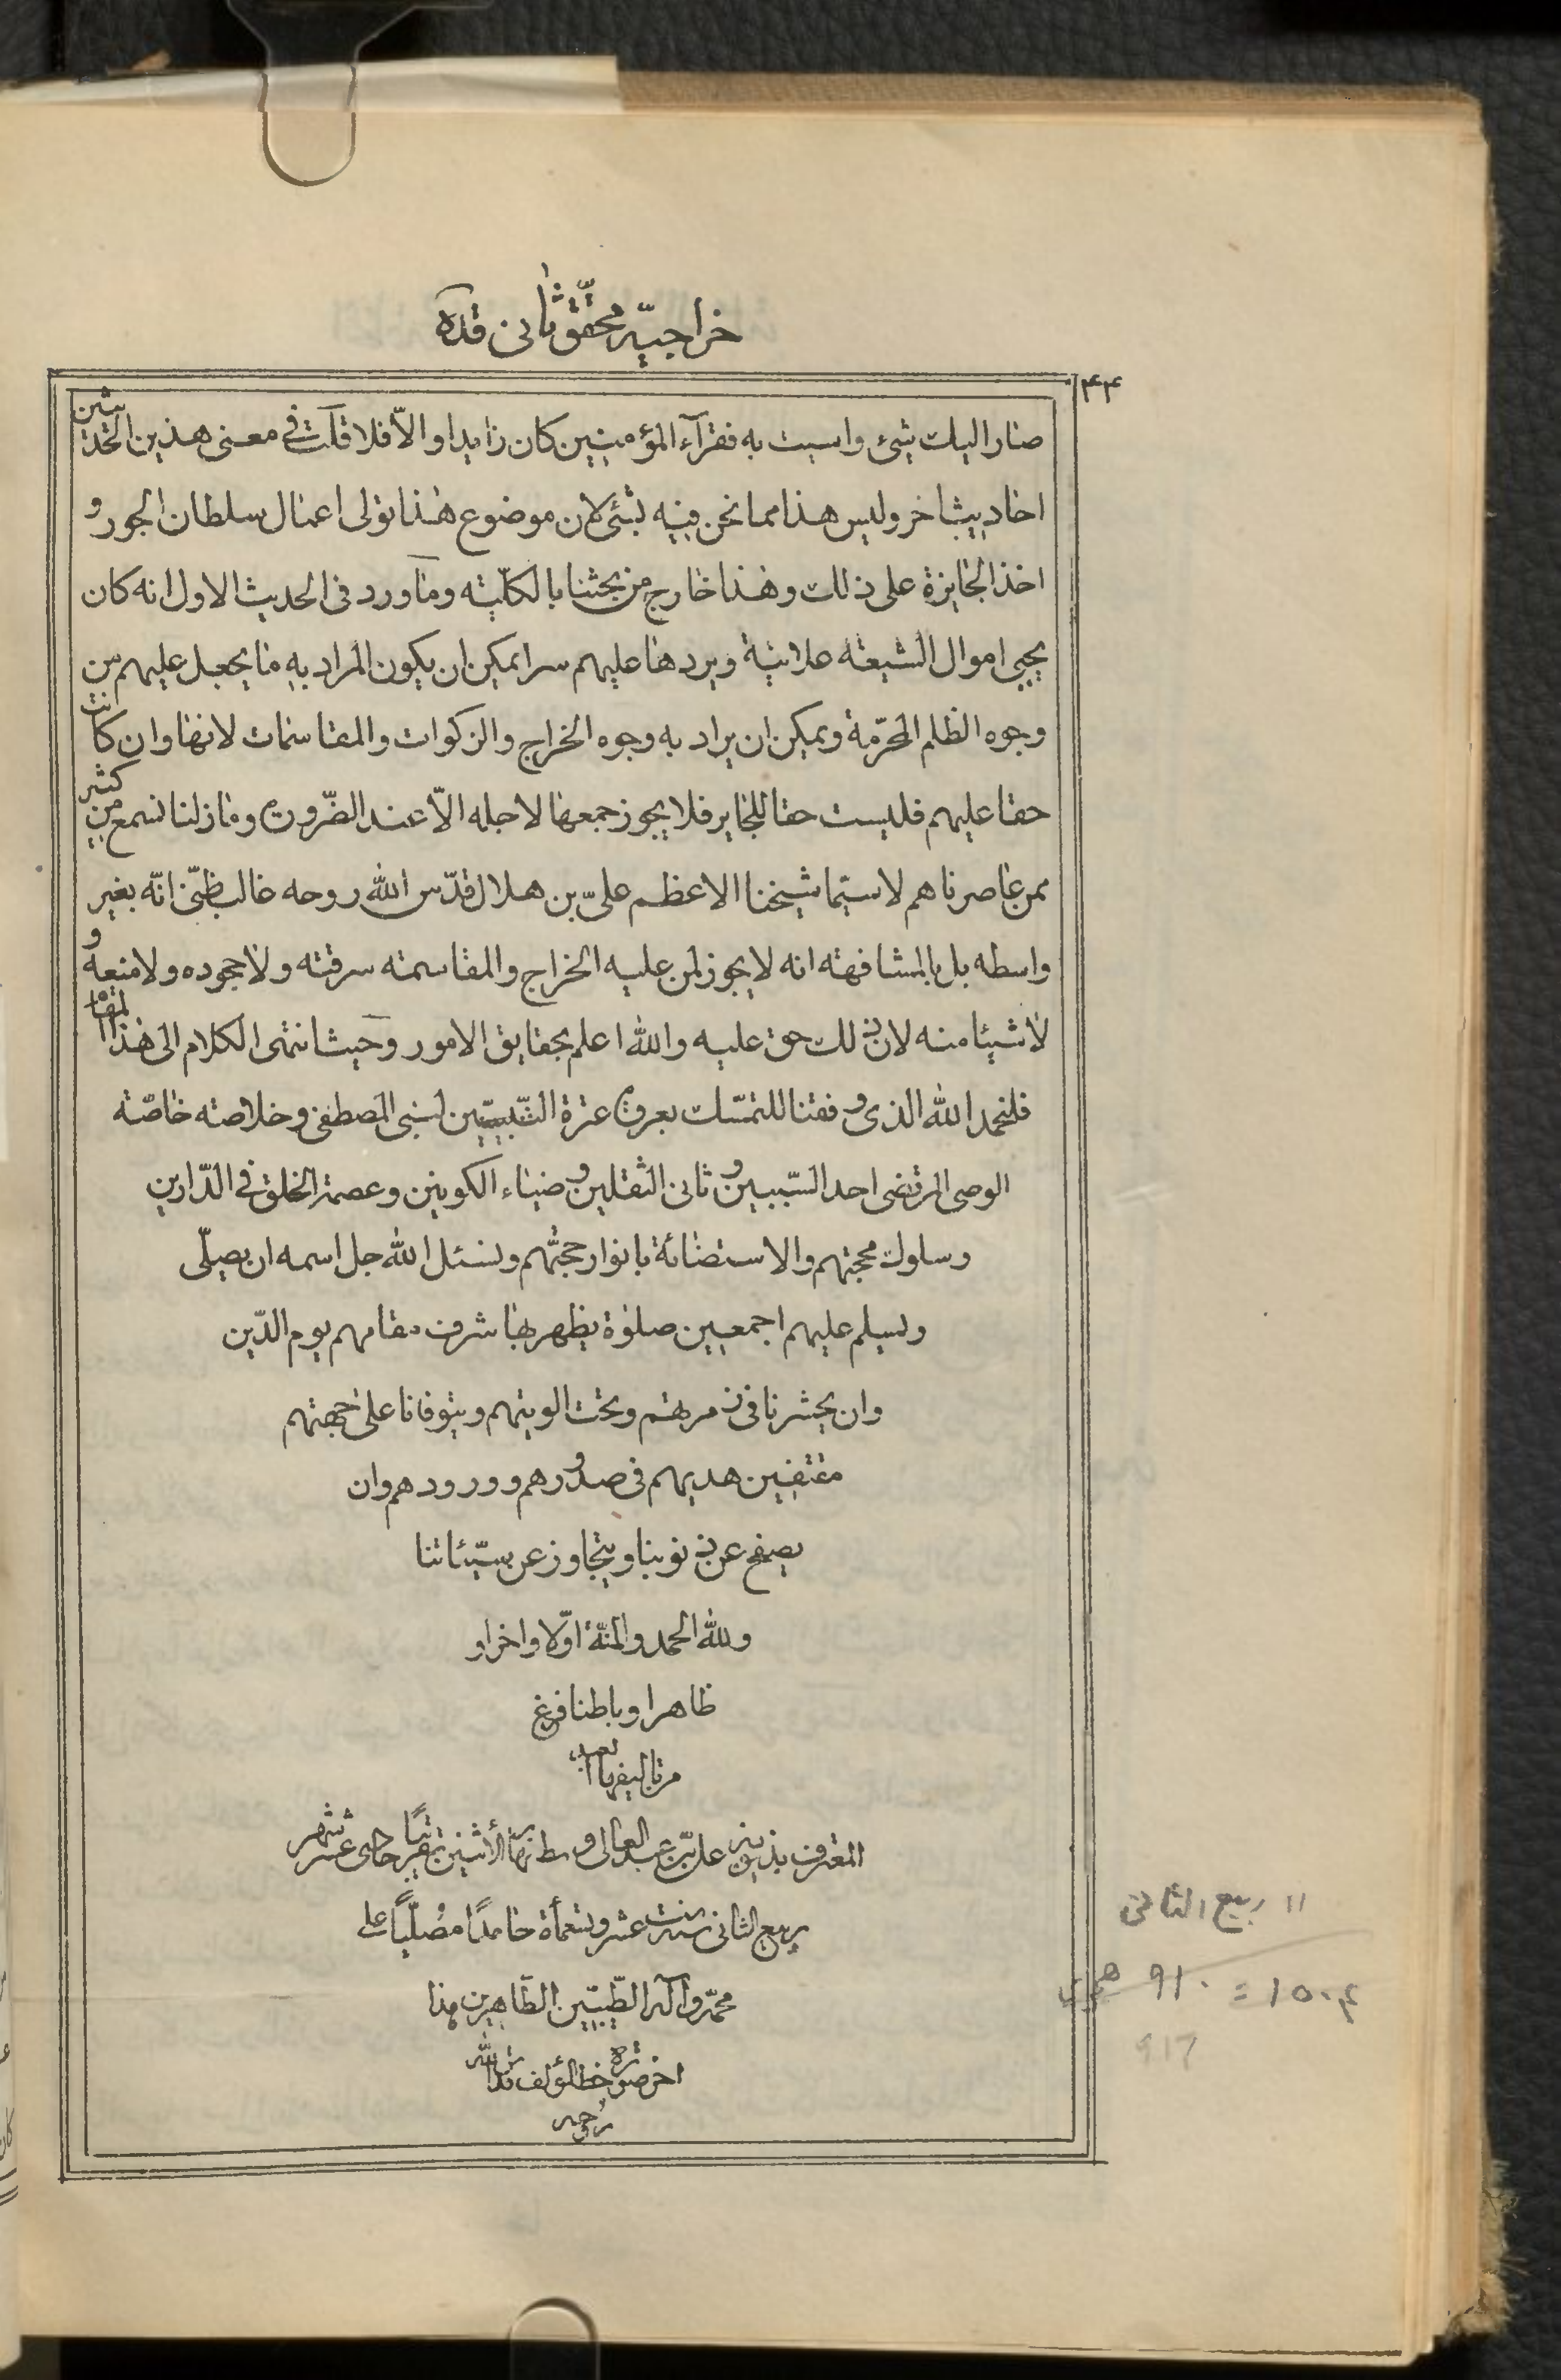 خراجيّه محقّق ثانى قده
۴۴
صار اليك شئ واسيت به فقرآء المؤمنين كان زايدا والاّ فلا قلت في معنى هذين الحديثين
احاديث اخر وليس هذا مما نحن فيه بشئ لان موضوع هذا تولى اعمال سلطان الجور و
اخذ الجايزة على ذلك وهذا خارج من بحثنا بالكلّية وما ورد فى الحديث الاول انه كان
يجبى اموال الشيعة علانية ويردها عليهم سرا يمكن ان يكون المراد به ما يجعل عليهم من
وجوه الظلم المحرّمة ويمكن ان يراد به وجوه الخراج والزكوات والمقاسمات لانها وان كانت
حقا عليهم فليست حقا للجاير فلا يجوز جمعها لاجله الاّ عند الضّرورة وما زلنا نسمع من كثير
ممن عاصرناهم لاسيّما شيخنا الاعظم علىّ بن هلال قدّس الله روحه غالب ظنّى انّه بغير
واسطه بل بالمشافهة انه لا يجوز لمن عليه الخراج والمقاسمة سرقته ولا جحوده ولا منعه و
لا شيئا منه لان ذلك حق عليه والله اعلم بحقايق الامور وحيث انتهى الكلام الى هذا المقام
فلنحمد الله الذى وفقنا للتمسّك بعروة عترة النّبيّين لنبى المصطفى وخلاصته خاصّة
الوصى المرتضى احد السّببين وثانى الثقلين وضياء الكونين وعصمة الخلق في الدّارين
وسلوك محجتهم والاستضائة بانوار حججهم ونسئل الله جل اسمه ان يصلّى
ويسلم عليهم اجمعين صلوة يظهر بها شرف مقامهم يوم الدّين
وان يحشرنا فى زمرهتم وتحت الويتهم ويتوفانا على حجهتهم
مقتفين هديهم فى صدورهم وورودهم وان
يصفح عن ذنوبنا ويتجاوز عن سيّئاتنا
ولله الحمد والمنّة اوّلا واخرا و
ظاهرا وباطنا فرغ
من تاليفها العبد
المعترف بذنوبه علىّ بن عبد العالى وسط نهار الأثنين تقريبًا حادى عشر شهر
ربيع الثانى سنة ست عشر وتسعمأة حامدًا مُصلّيًا على
محمّد وآله الطّيّبين الطّاهرين هذا
اخر صورة خط المؤلف قدس الله
روحه
۱۱ ربيع الثانى
۱۵۰۴ = ۹۱۰ هجرى
917